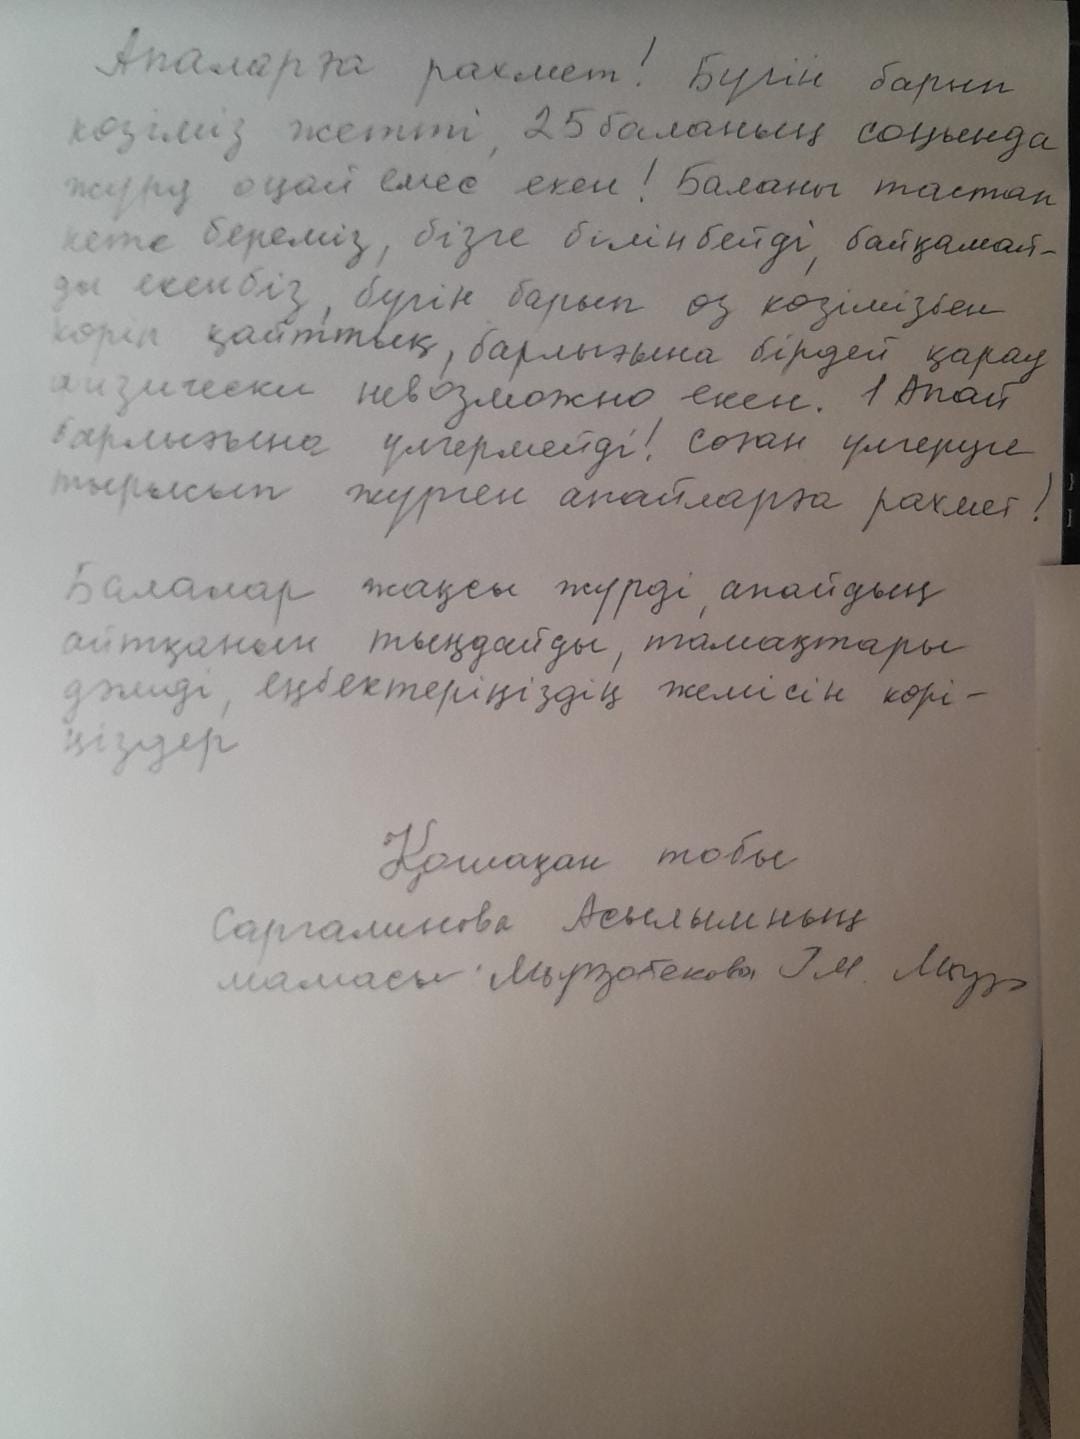 Апаларға рахмет! Бүгін барып
көзіміз жетті, 25 баланың соңында
жүру оңай емес екен! Баланы тастап
кете береміз, бізге білінбейді, байқамай-
ды екенбіз, бүгін барып өз көзімізбен
көріп қайттық, барлығына бірдей қарау
физически невозможно екен. 1 Апай
барлығына үлгермейді! Соған үлгеруге
тырысып жүрген апайларға рахмет!
Балалар жақсы жүрді, апайдың
айтқанын тыңдайды, тамақтары
дәмді, еңбектеріңіздің жемісін көрі-
ңіздер
Қошақан тобы
Саргалинова Асылымның
мамасы Мырзабекова